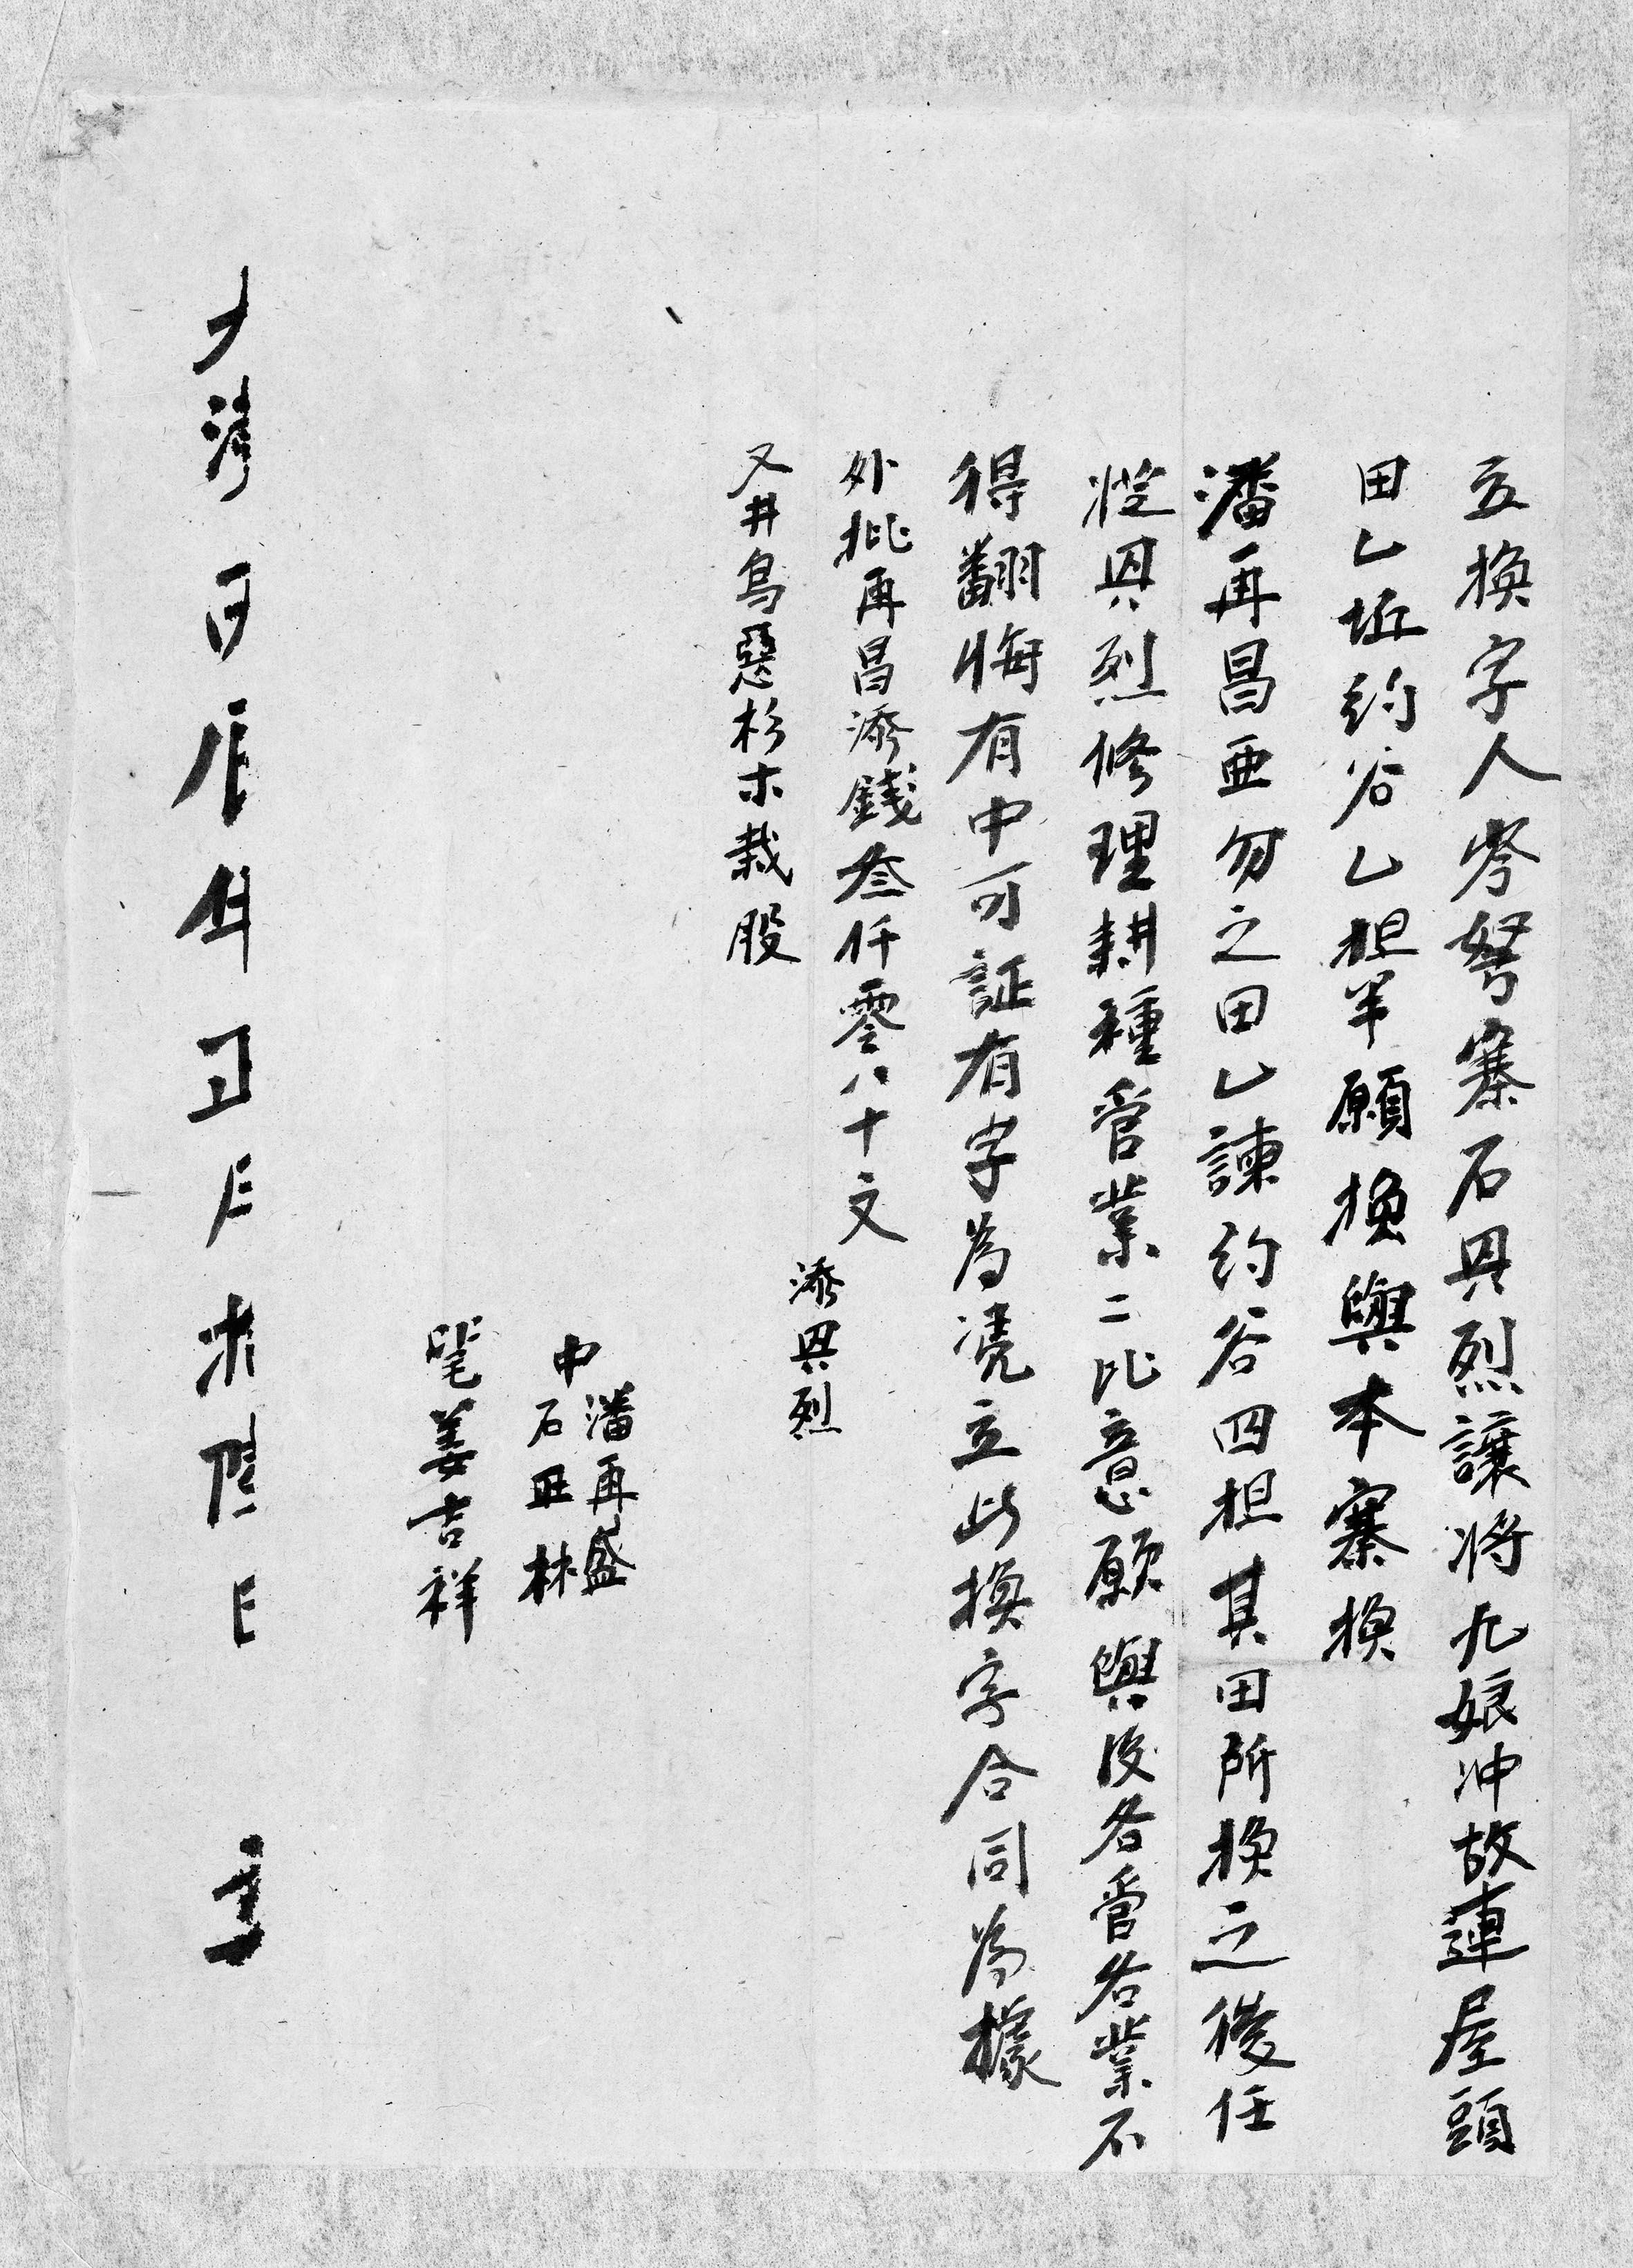 立換字人岑努寨石具烈讓將九娘冲故蓮屋頭
田乚坵約谷乚担半願換與本寨換
潘再昌亜勿之田乚諫約谷四担其田所換之後任
從具烈修理耕種管業二比意願與後各管各業不
得翻悔有中可証有字為凴立此換字合同為據
外批再昌添錢叁仟零八十文
添具烈
又井烏惡杉木栽股
潘再盛
中石旺林
筆姜吉祥
大清